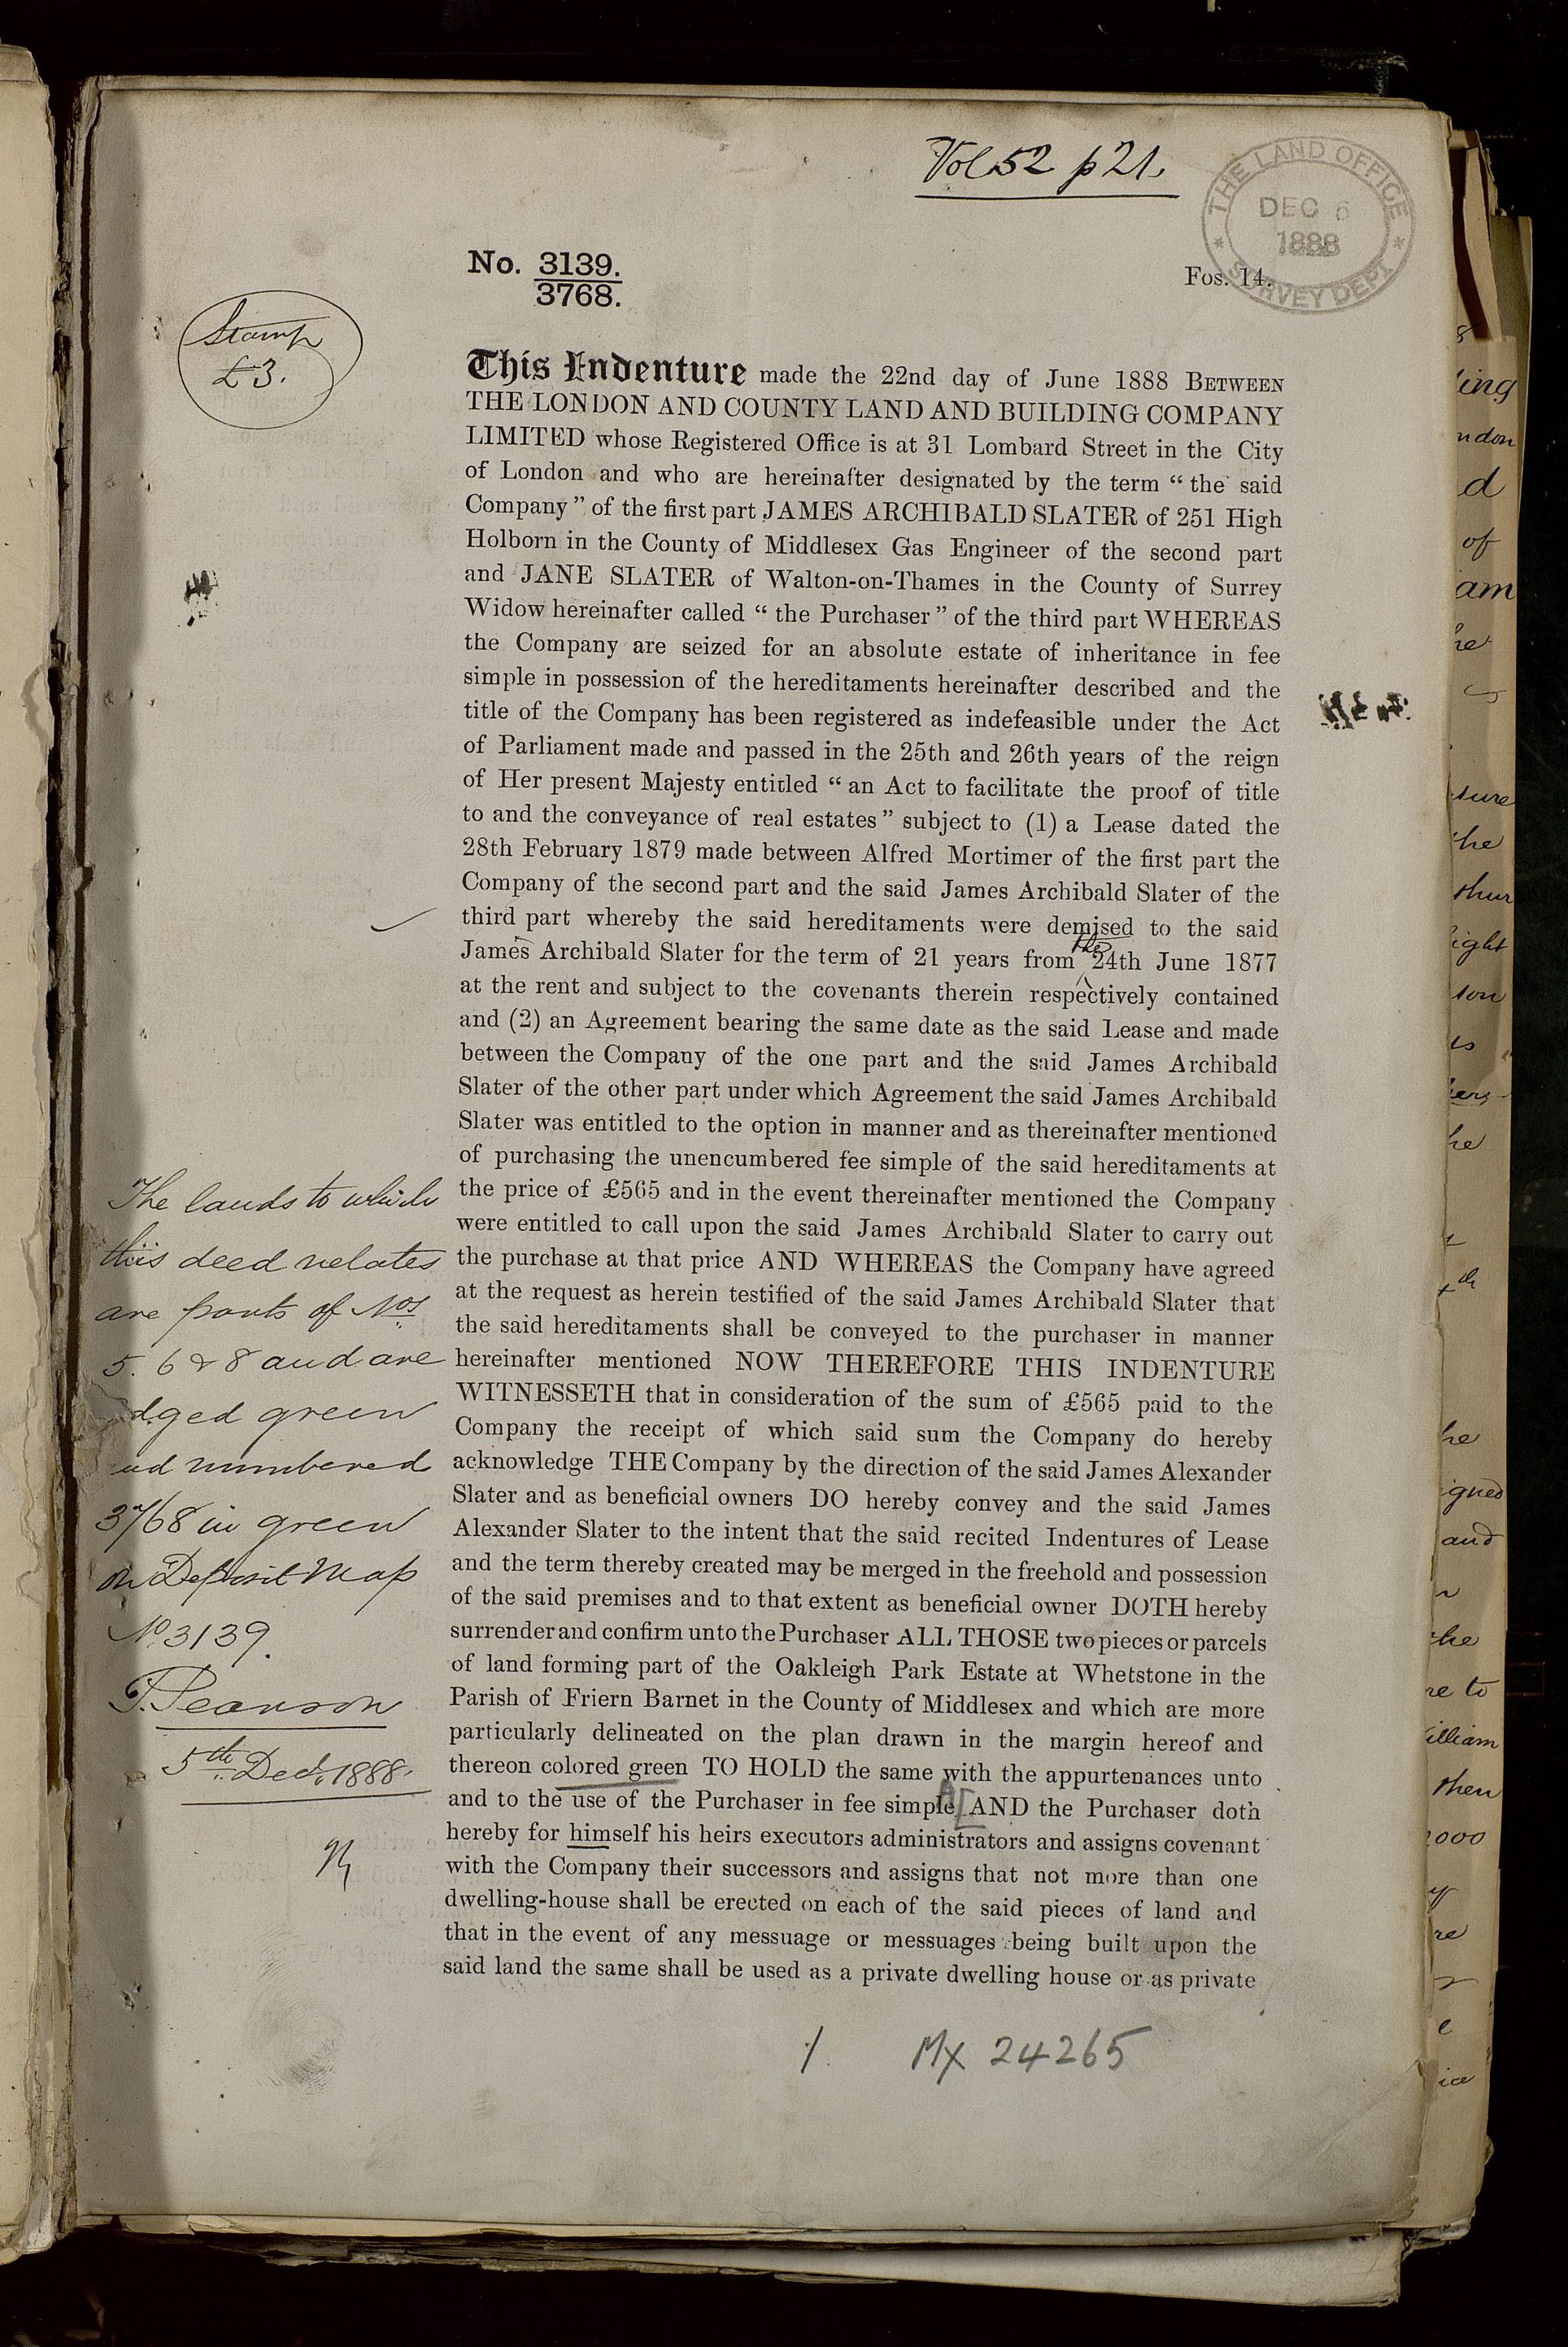 Vol 52 p 21.
THE LAND OFFICE
DEC 6
1888
SURVEY DEPT
No. 3139.
3768.
Fos. 14.
Stamp
£3.
This Indenture made the 22nd day of June 1888 BETWEEN
THE LONDON AND COUNTY LAND AND BUILDING COMPANY
LIMITED whose Registered Office is at 31 Lombard Street in the City
of London and who are hereinafter designated by the term “ the said
Company ” of the first part JAMES ARCHIBALD SLATER of 251 High
Holborn in the County of Middlesex Gas Engineer of the second part
and JANE SLATER of Walton-on-Thames in the County of Surrey
Widow hereinafter called “ the Purchaser ” of the third part WHEREAS
the Company are seized for an absolute estate of inheritance in fee
simple in possession of the hereditaments hereinafter described and the
title of the Company has been registered as indefeasible under the Act
of Parliament made and passed in the 25th and 26th years of the reign
of Her present Majesty entitled “ an Act to facilitate the proof of title
to and the conveyance of real estates ” subject to (1) a Lease dated the
28th February 1879 made between Alfred Mortimer of the first part the
Company of the second part and the said James Archibald Slater of the
third part whereby the said hereditaments were demised to the said
James Archibald Slater for the term of 21 years from the 24th June 1877
at the rent and subject to the covenants therein respectively contained
and (2) an Agreement bearing the same date as the said Lease and made
between the Company of the one part and the said James Archibald
Slater of the other part under which Agreement the said James Archibald
Slater was entitled to the option in manner and as thereinafter mentioned
of purchasing the unencumbered fee simple of the said hereditaments at
the price of £565 and in the event thereinafter mentioned the Company
were entitled to call upon the said James Archibald Slater to carry out
the purchase at that price AND WHEREAS the Company have agreed
at the request as herein testified of the said James Archibald Slater that
the said hereditaments shall be conveyed to the purchaser in manner
hereinafter mentioned NOW THEREFORE THIS INDENTURE
WITNESSETH that in consideration of the sum of £565 paid to the
Company the receipt of which said sum the Company do hereby
acknowledge THE Company by the direction of the said James Alexander
Slater and as beneficial owners DO hereby convey and the said James
Alexander Slater to the intent that the said recited Indentures of Lease
and the term thereby created may be merged in the freehold and possession
of the said premises and to that extent as beneficial owner DOTH hereby
surrender and confirm unto the Purchaser ALL THOSE two pieces or parcels
of land forming part of the Oakleigh Park Estate at Whetstone in the
Parish of Friern Barnet in the County of Middlesex and which are more
particularly delineated on the plan drawn in the margin hereof and
thereon colored green TO HOLD the same with the appurtenances unto
and to the use of the Purchaser in fee simple AND the Purchaser doth
hereby for himself his heirs executors administrators and assigns covenant
with the Company their successors and assigns that not more than one
dwelling-house shall be erected on each of the said pieces of land and
that in the event of any messuage or messuages being built upon the
said land the same shall be used as a private dwelling house or as private
The lands to which
this deed relates
are parts of Nos
5. 6 & 8 and are
edged green
and numbered
3768 in green
on Deposit Map
No. 3139.
T. Pearson
5th Dec. 1888.
1 Mx 24265